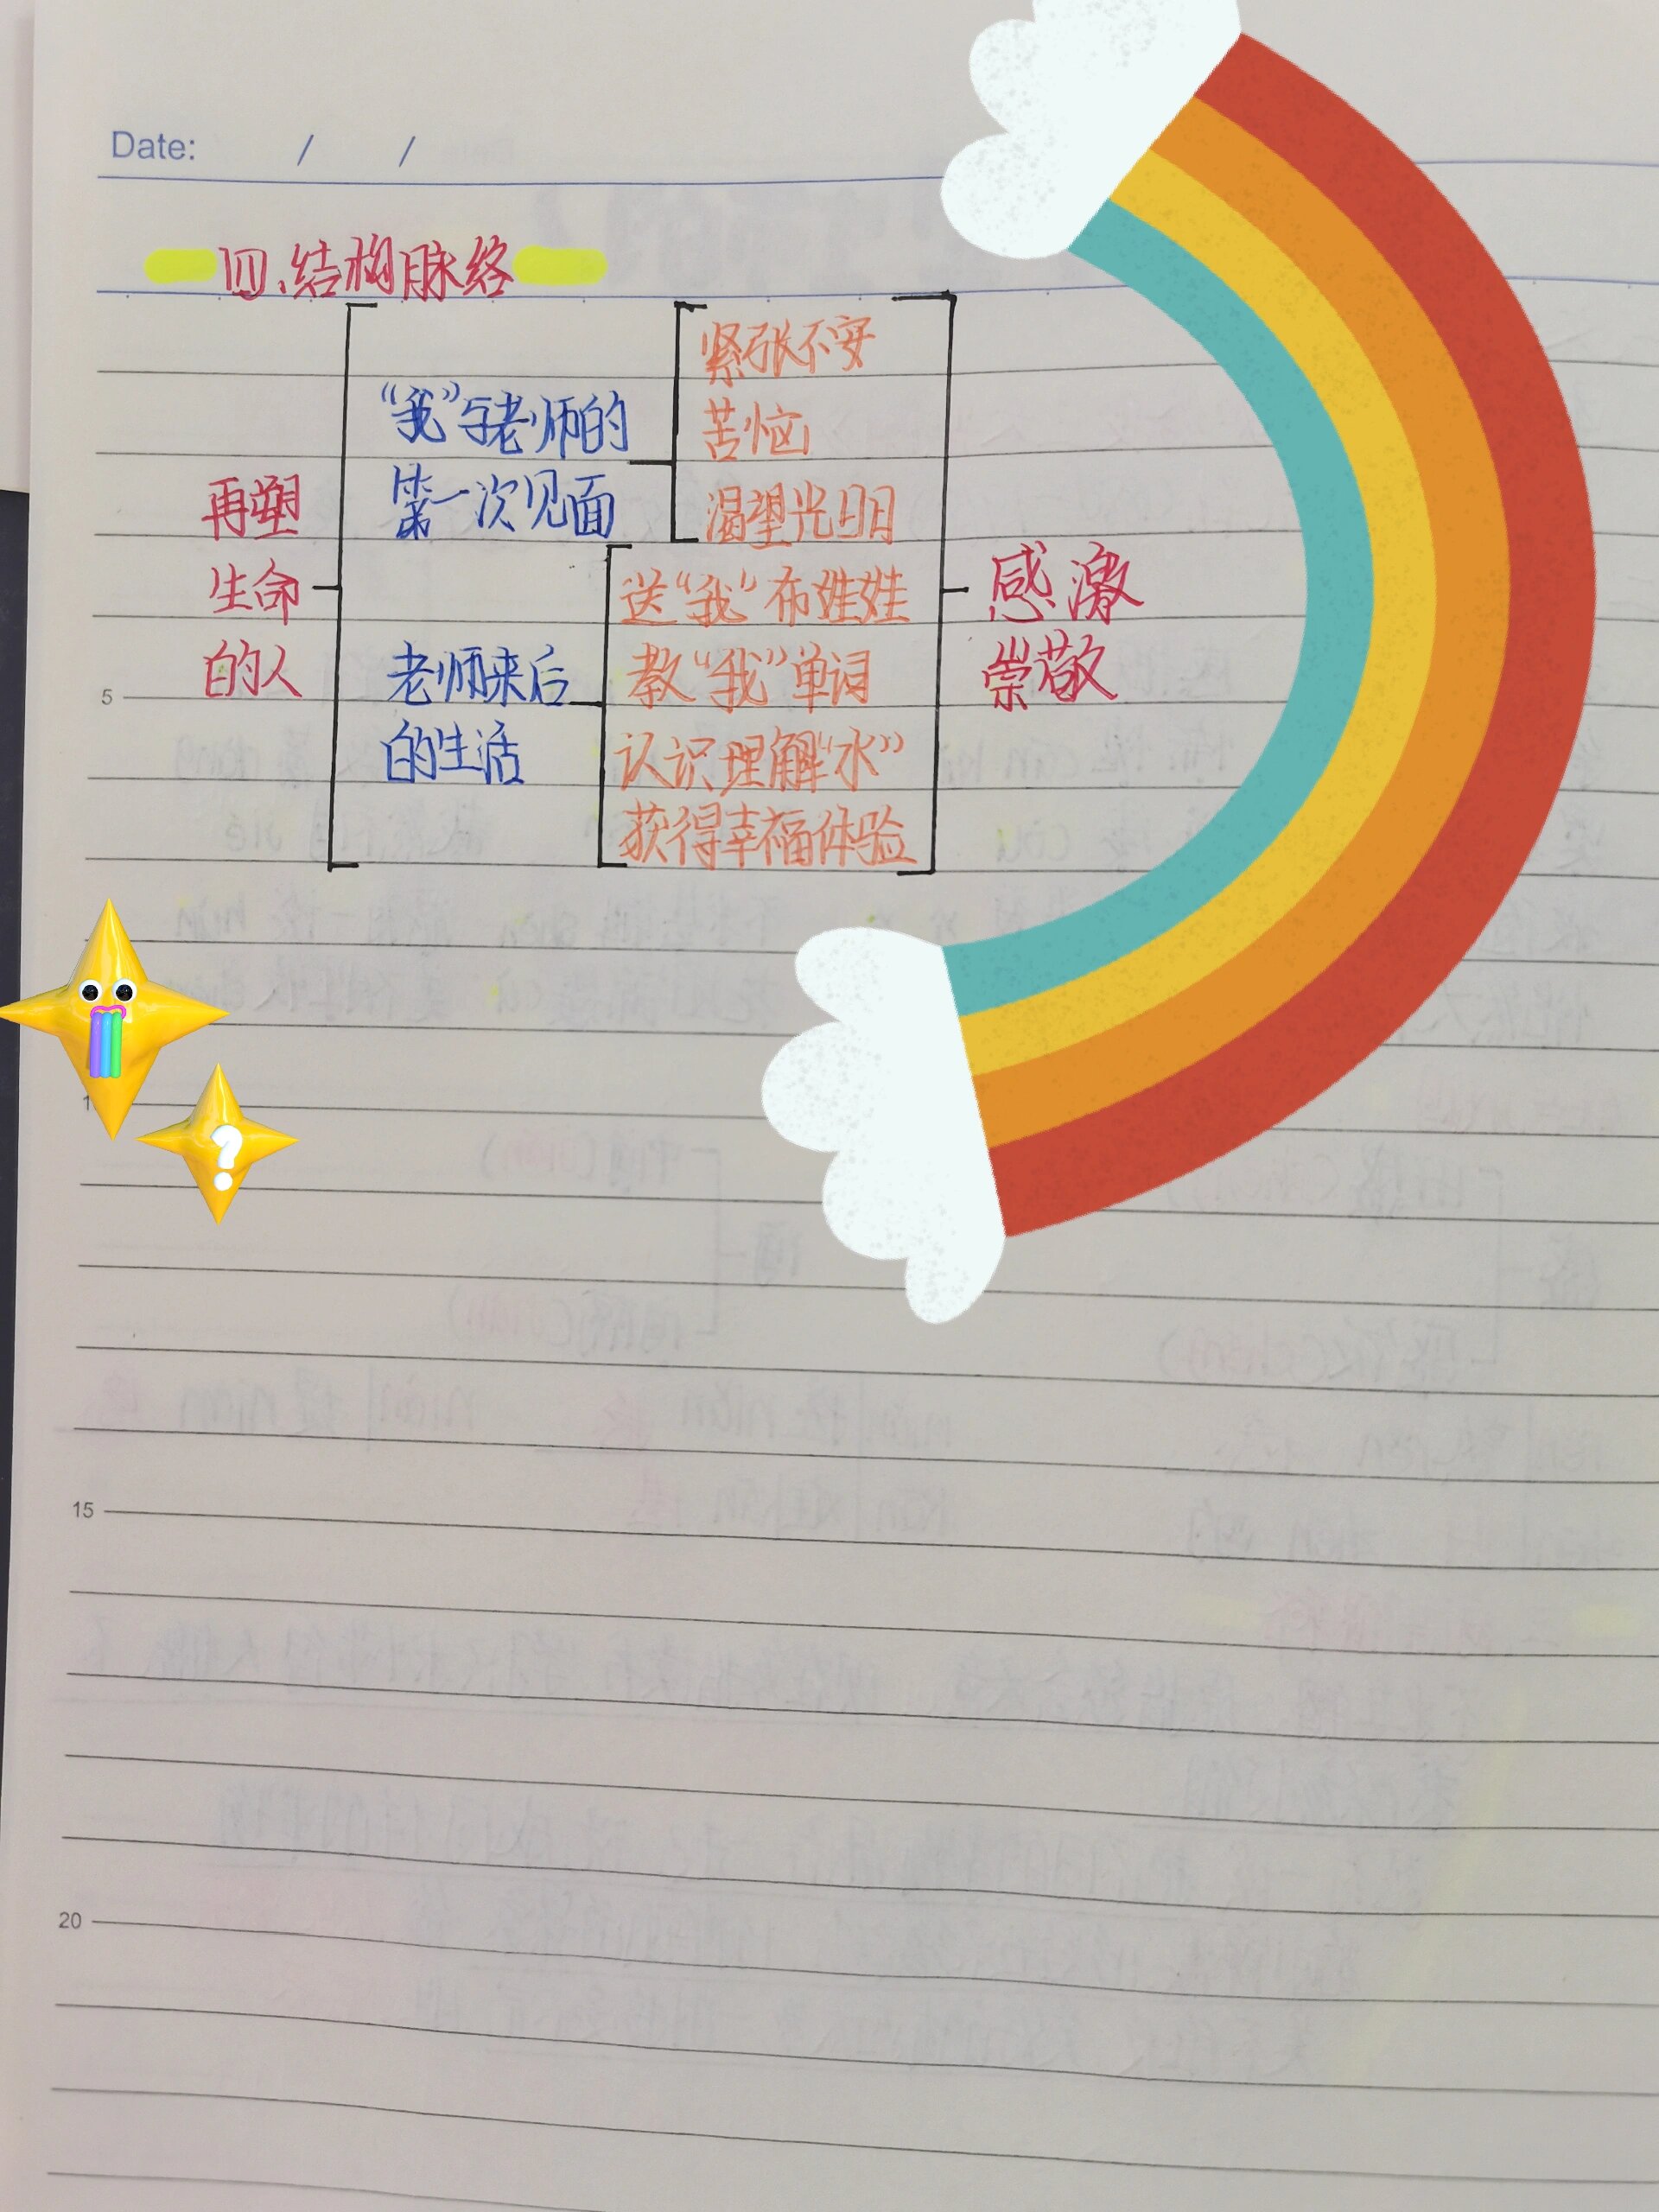 Date: / /
四、结构脉络
再塑
生命
的人
“我”与老师的
第一次见面
紧张不安
苦恼
渴望光明
老师来后
的生活
送“我”布娃娃
教“我”单词
认识理解“水”
获得幸福体验
感激
崇敬
5
15
20
?